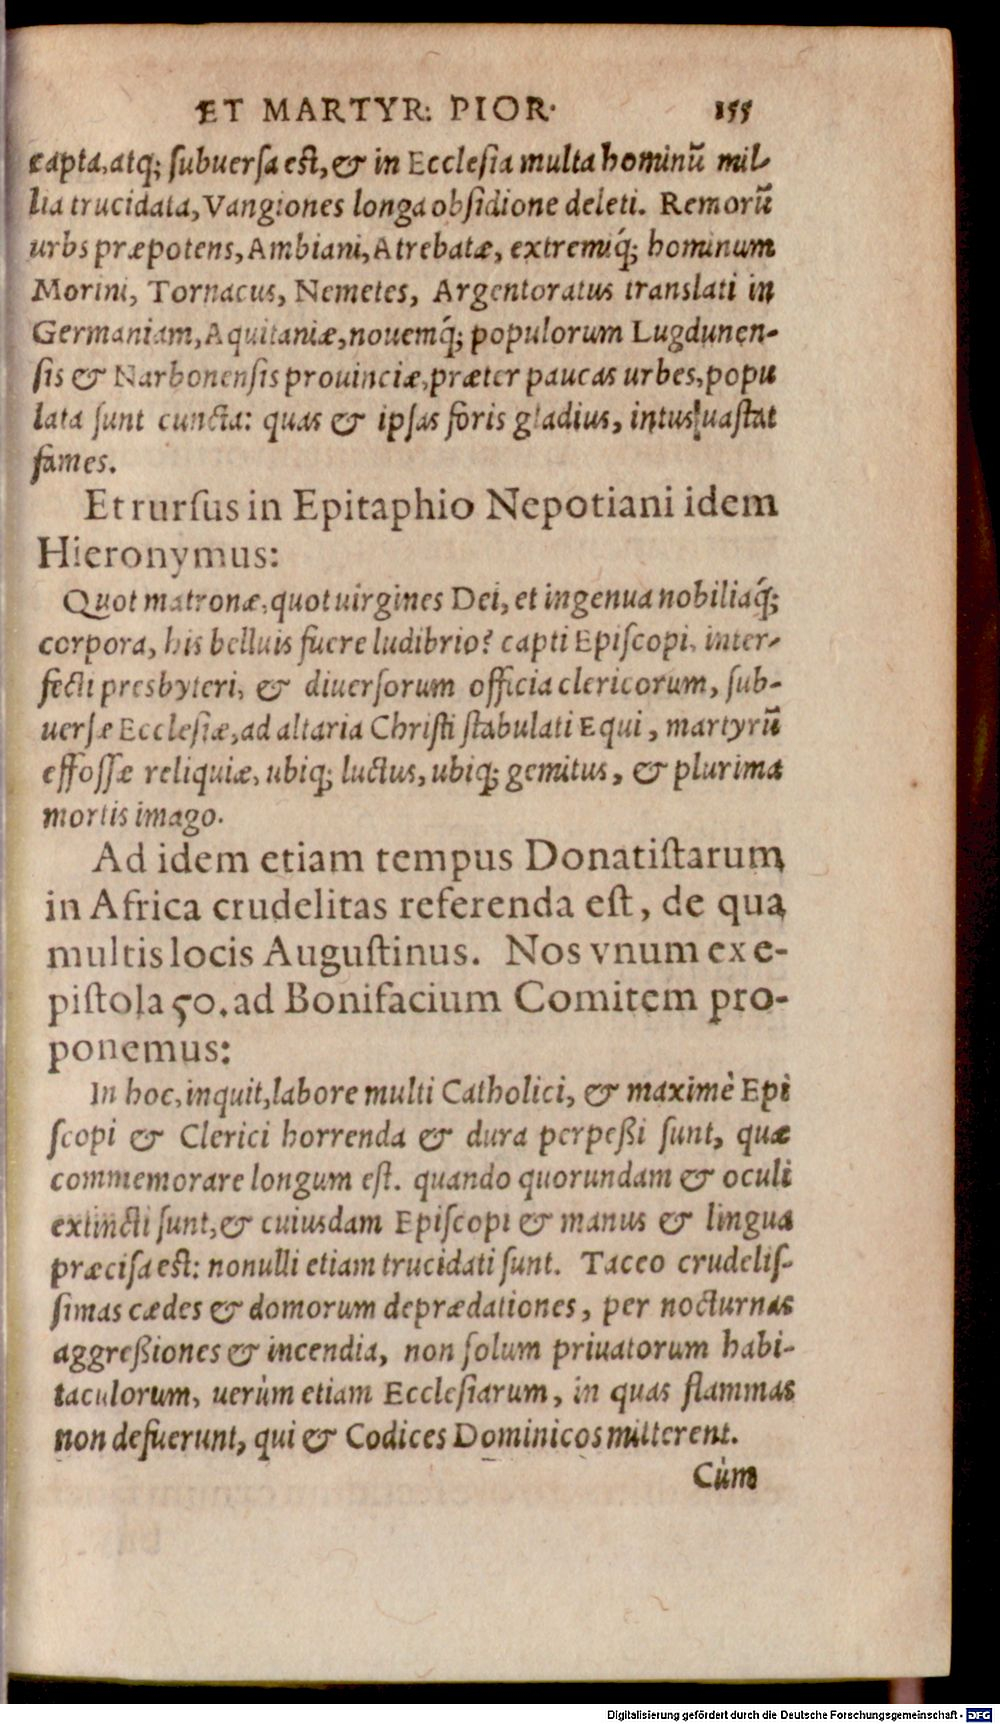 ET MARTYR: PIOR· 155
capta, atq; subuersa est, & in Ecclesia multa hominũ mil-
lia trucidata, Vangiones longa obsidione deleti. Remorũ
urbs præpotens, Ambiani, Atrebatæ, extremiq́; hominum
Morini, Tornacus, Nemetes, Argentoratus translati in
Germaniam, Aquitaniæ, nouemq́; populorum Lugdunen-
sis & Narbonensis prouinciæ, præter paucas urbes, popu
lata sunt cuncta: quas & ipsas foris gladius, intus uastat
fames.
Et rursus in Epitaphio Nepotiani idem
Hieronymus:
Quot matronæ, quot uirgines Dei, et ingenua nobiliaq́;
corpora, his belluis fuere ludibrio? capti Episcopi, inter-
fecti presbyteri, & diuersorum officia clericorum, sub-
uersæ Ecclesiæ, ad altaria Christi stabulati Equi, martyrũ
effossæ reliquiæ, ubiq; luctus, ubiq; gemitus, & plurima
mortis imago.
Ad idem etiam tempus Donatistarum
in Africa crudelitas referenda est, de qua
multis locis Augustinus. Nos vnum ex e-
pistola 50. ad Bonifacium Comitem pro-
ponemus:
In hoc, inquit, labore multi Catholici, & maximè Epi
scopi & Clerici horrenda & dura perpeßi sunt, quæ
commemorare longum est. quando quorundam & oculi
extincti sunt, & cuiusdam Episcopi & manus & lingua
præcisa est: nonulli etiam trucidati sunt. Taceo crudelis-
simas cædes & domorum deprædationes, per nocturnas
aggreßiones & incendia, non solum priuatorum habi-
taculorum, uerùm etiam Ecclesiarum, in quas flammas
non defuerunt, qui & Codices Dominicos mitterent.
Cùm
Digitalisierung gefördert durch die Deutsche Forschungsgemeinschaft - DFG